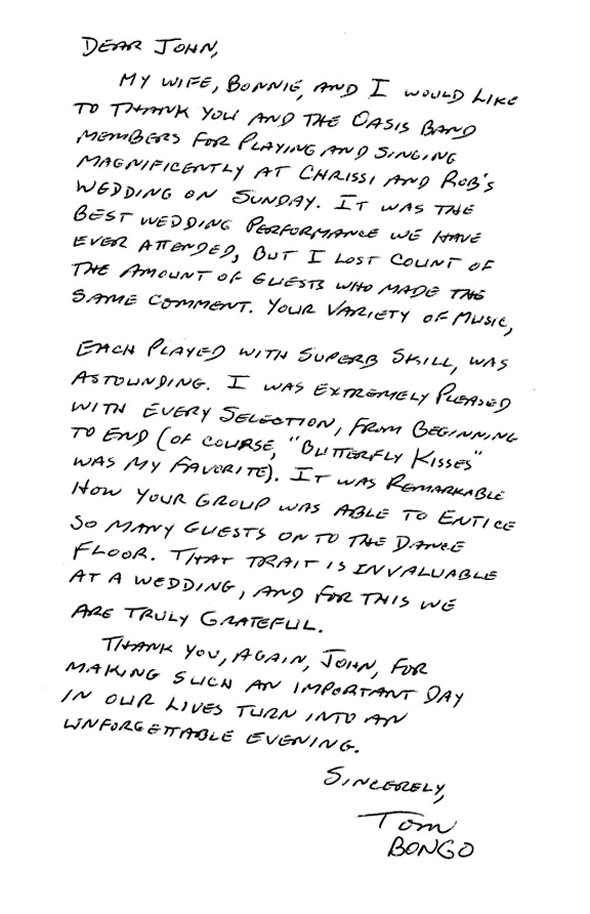 DEAR JOHN,
MY WIFE, BONNIE, AND I WOULD LIKE
TO THANK YOU AND THE OASIS BAND
MEMBERS FOR PLAYING AND SINGING
MAGNIFICENTLY AT CHRISSI AND ROB'S
WEDDING ON SUNDAY. IT WAS THE
BEST WEDDING PERFORMANCE WE HAVE
EVER ATTENDED, BUT I LOST COUNT OF
THE AMOUNT OF GUESTS WHO MADE THE
SAME COMMENT. YOUR VARIETY OF MUSIC,
EACH PLAYED WITH SUPERB SKILL, WAS
ASTOUNDING. I WAS EXTREMELY PLEASED
WITH EVERY SELECTION, FROM BEGINNING
TO END (OF COURSE, "BUTTERFLY KISSES"
WAS MY FAVORITE). IT WAS REMARKABLE
HOW YOUR GROUP WAS ABLE TO ENTICE
SO MANY GUESTS ON TO THE DANCE
FLOOR. THAT TRAIT IS INVALUABLE
AT A WEDDING, AND FOR THIS WE
ARE TRULY GRATEFUL.
THANK YOU, AGAIN, JOHN, FOR
MAKING SUCH AN IMPORTANT DAY
IN OUR LIVES TURN INTO AN
UNFORGETTABLE EVENING.
SINCERELY,
TOM
BONGO